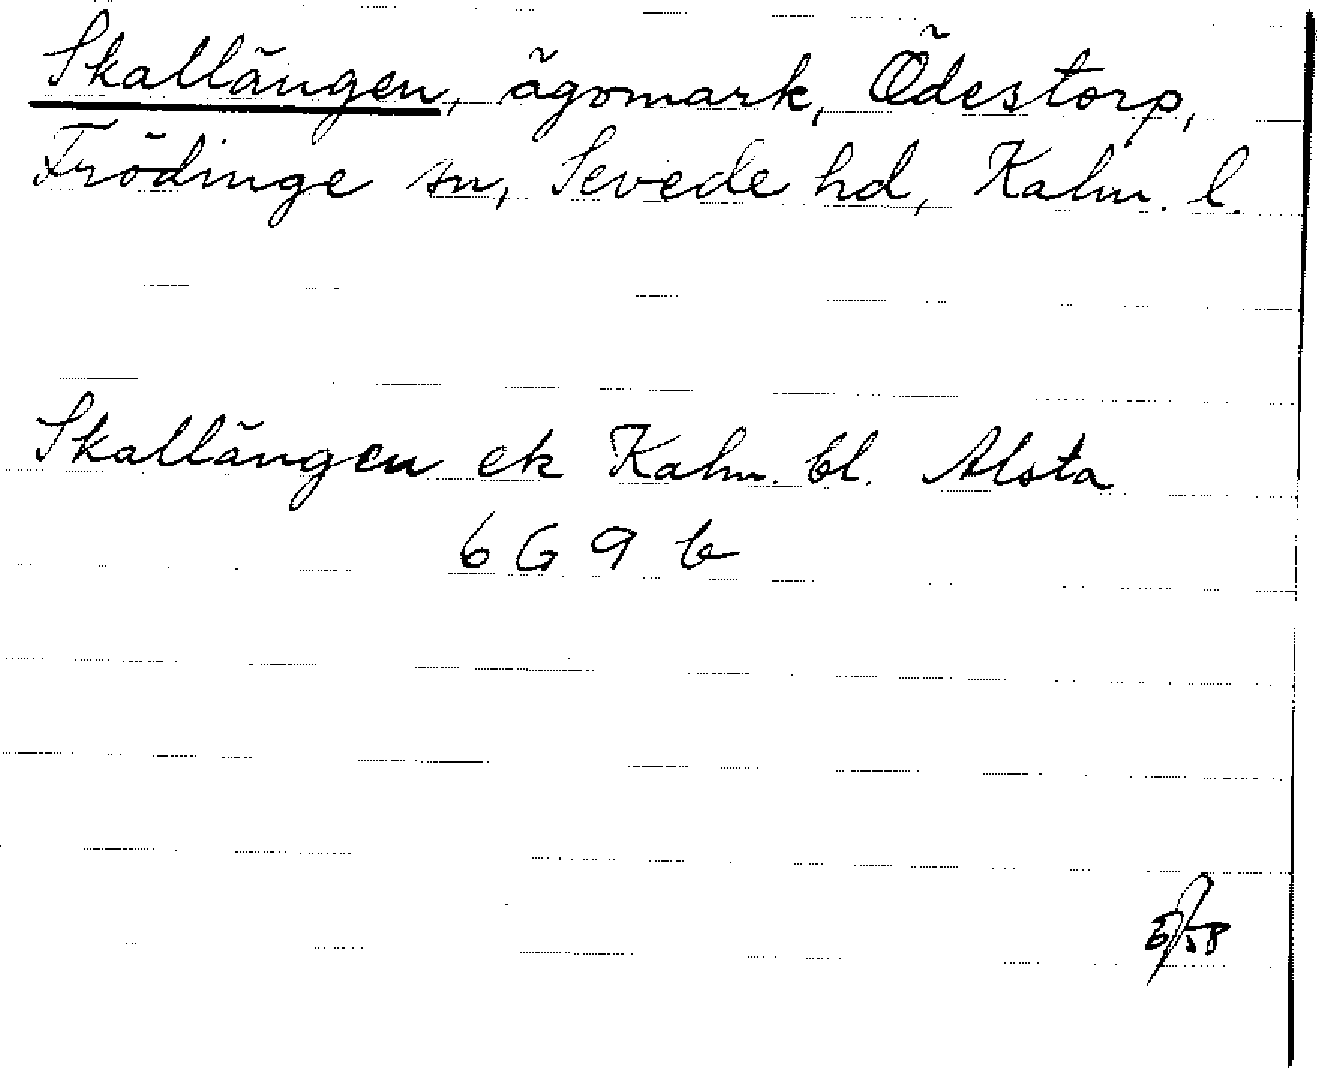 Skallängen, ägomark, Ödestorp,
Frödinge sn, Sevede hd, Kalm. l.
Skallängen ek Kalm. bl. Alsta
6 G 9 b